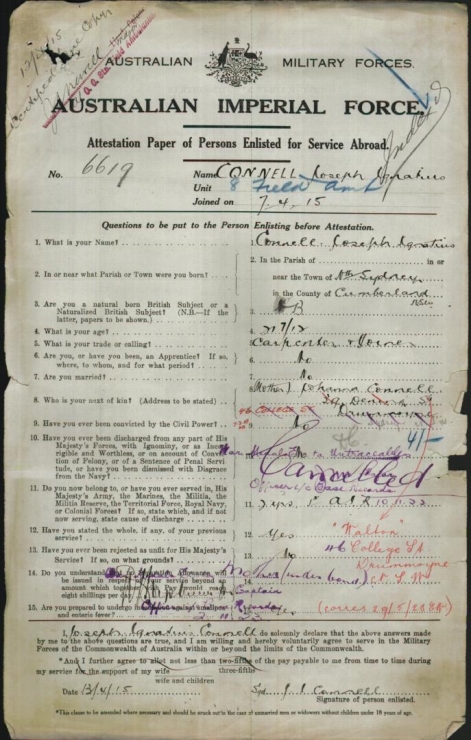 AUSTRALIAN MILITARY FORCES.
AUSTRALIAN IMPERIAL FORCE.
Attestation Paper of Persons Enlisted for Service Abroad.
No. 6619 Name CONNELL Joseph Ignatius
Unit 8 Field Amb
Joined on 7.4.15
Questions to be put to the Person Enlisting before Attestation.
1. What is your Name? 1. Connell Joseph Ignatius
2. In or near what Parish or Town were you born? 2. In the Parish of in or
near the Town of Nth Sydney
in the County of Cumberland
NSW
3. Are you a natural born British Subject or a
Naturalized British Subject? (N.B.—If the
latter, papers to be shown.) 3. B
4. What is your age? 4. 27 7/12
5. What is your trade or calling? 5. Carpenter & Joiner
6. Are you, or have you been, an Apprentice? If so,
where, to whom, and for what period? 6. No
7. Are you married? 7. No
8. Who is your next of kin? (Address to be stated) 8. (Mother) Johanna Connell
St
46 College St Drummoyne
9. Have you ever been convicted by the Civil Power? 9. No
10. Have you ever been discharged from any part of His
Majesty's Forces, with Ignominy, or as Incor-
rigible and Worthless, or on account of Convic-
tion of Felony, or of a Sentence of Penal Servi-
tude, or have you been dismissed with Disgrace
from the Navy?
Cancelled
Officer i/c Base Records
11. Do you now belong to, or have you ever served in, His
Majesty's Army, the Marines, the Militia, the
Militia Reserve, the Territorial Force, Royal Navy,
or Colonial Forces? If so, state which, and if not
now serving, state cause of discharge 11. Yes
12. Have you stated the whole, if any, of your previous
service? 12. Yes
"Walton"
46 College St
Drummoyne
13. Have you ever been rejected as unfit for His Majesty's
Service? If so, on what grounds? 13. No
14. Do you understand that no Separation Allowance will
be issued in respect of your service beyond an
amount which together with Pay would reach
eight shillings per day?
Captain
15. Are you prepared to undergo inoculation against smallpox
and enteric fever? 15.
I, Joseph Ignatius Connell do solemnly declare that the above answers made
by me to the above questions are true, and I am willing and hereby voluntarily agree to serve in the Military
Forces of the Commonwealth of Australia within or beyond the limits of the Commonwealth.
*And I further agree to allot not less than two-fifths of the pay payable to me from time to time during
three-fifths
my service for the support of my wife
wife and children
Date 13/4/15 Sgd J. I. Connell
Signature of person enlisted.
*This clause to be amended where necessary and should be struck out in the case of unmarried men or widowers without children under 18 years of age.